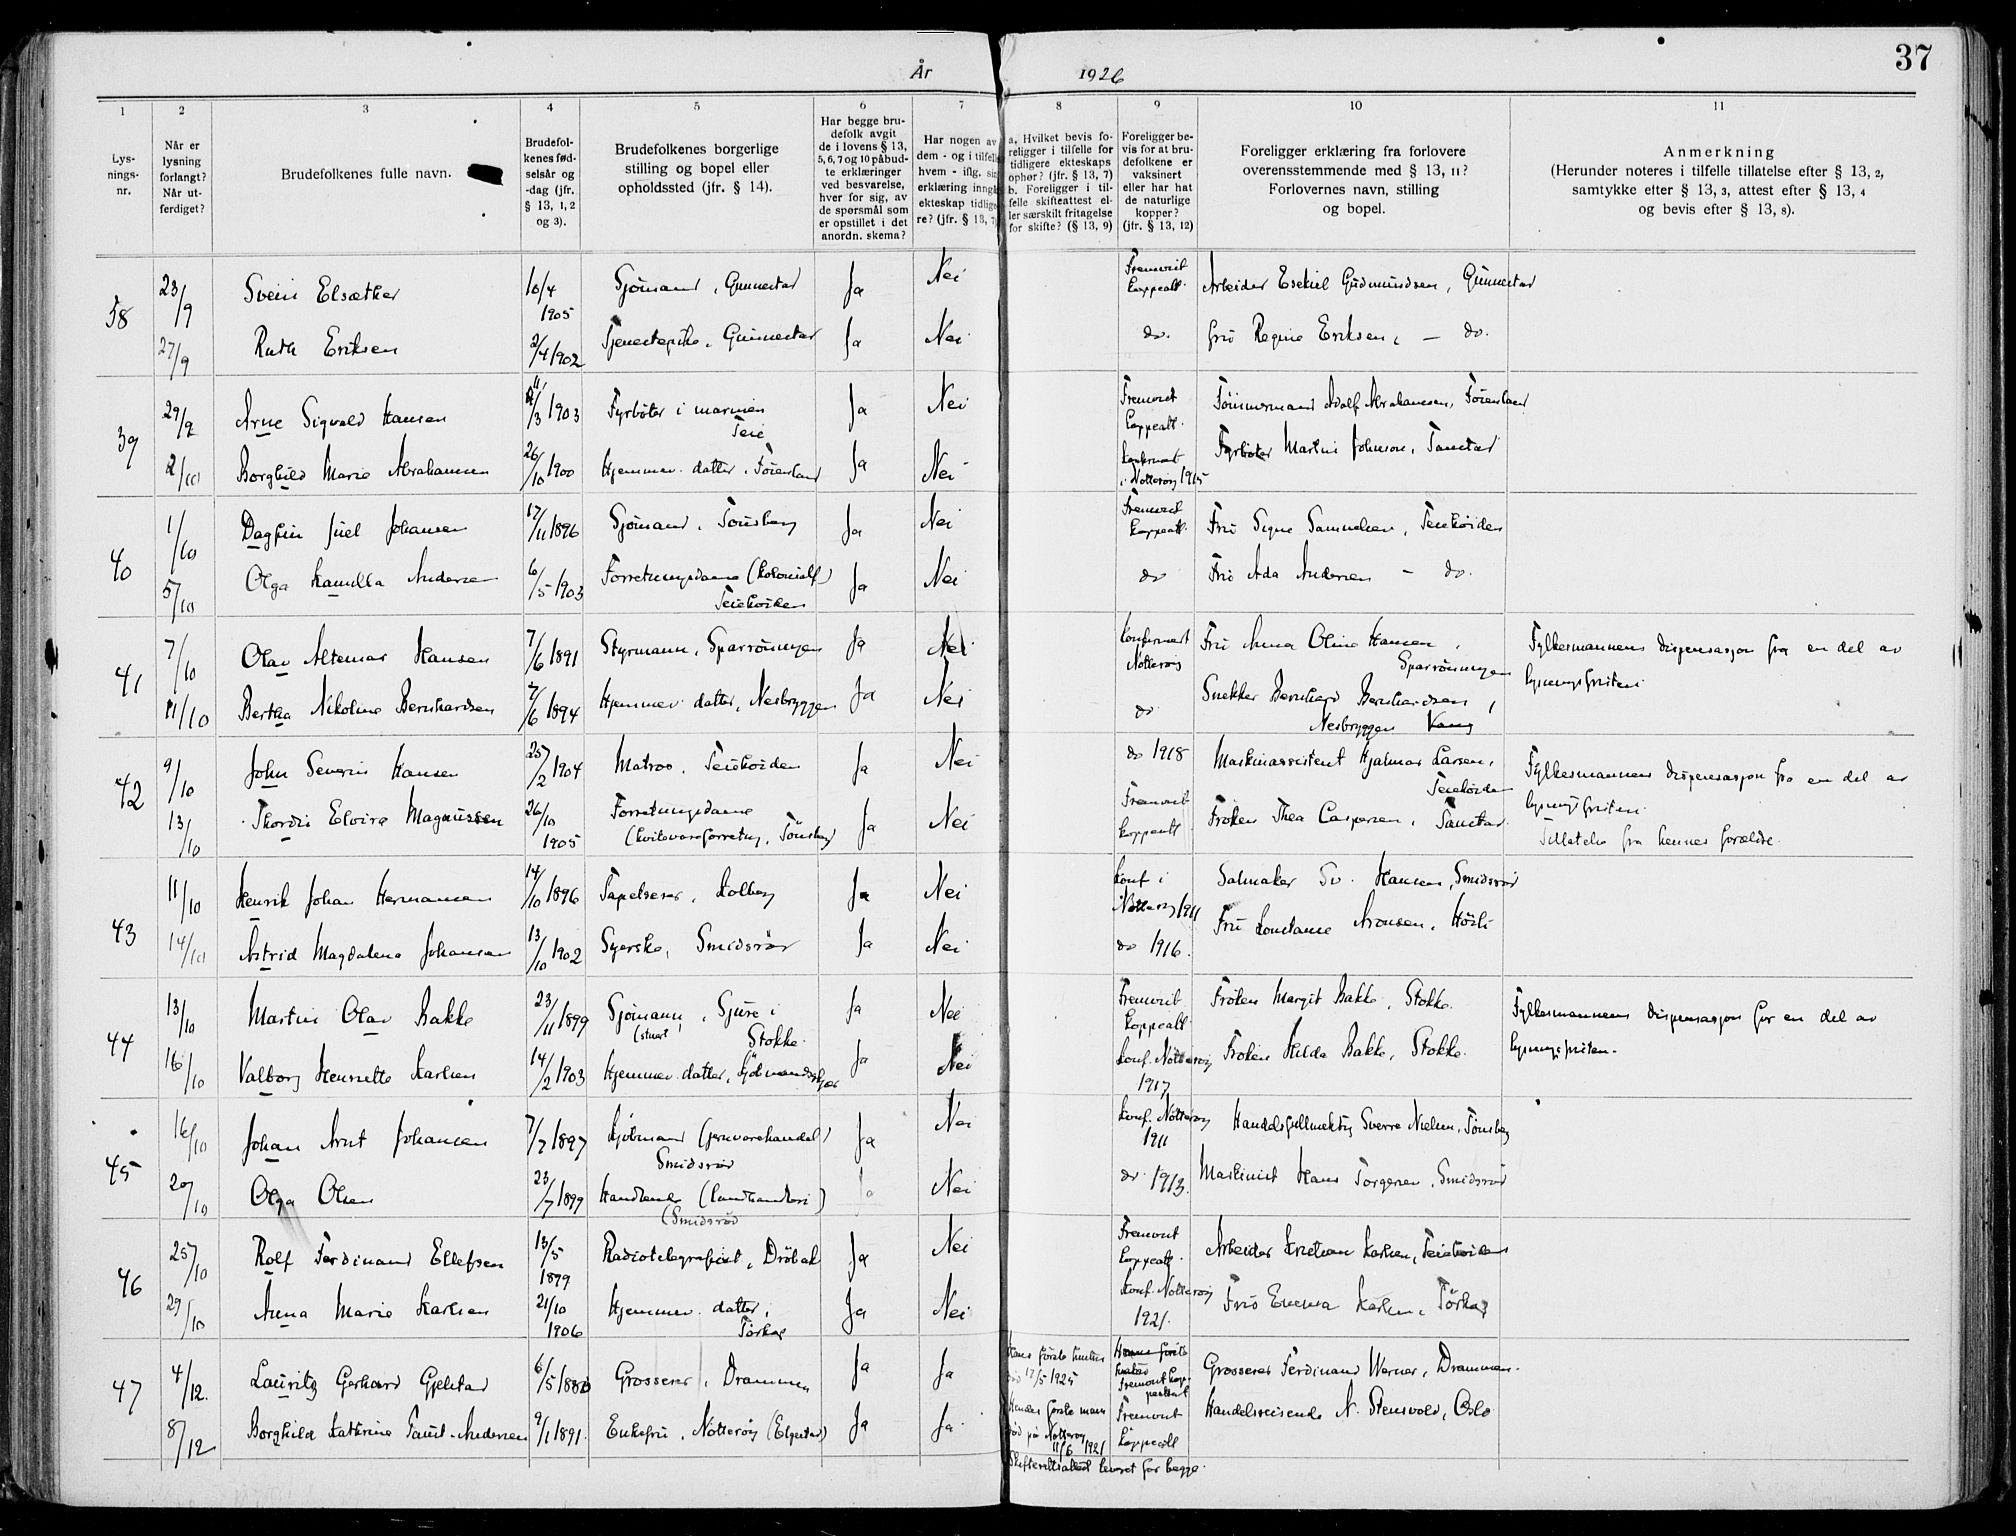 37
År 1926
1 2 3 4 5 6 7 8 9 10 11
Lys-
nings-
nr.
Når er
lysning
forlangt?
Når ut-
ferdiget?
Brudefolkenes fulle navn.
Brudefol-
kenes fød-
selsår og
-dag (jfr.
§ 13, 1, 2
og 3).
Brudefolkenes borgerlige
stilling og bopel eller
opholdssted (jfr. § 14).
Har begge bru-
defolk avgit
de i lovens § 13,
5, 6, 7 og 10 påbud-
te erklæringer
ved besvarelse,
hver for sig, av
de spørsmål som
er opstillet i det
anordn. skema?
Har nogen av
dem - og i tilfelle
hvem - iflg. sin
erklæring inngå
ekteskap tidlige
re? (jfr. § 13, 7)
a, Hvilket bevis fo-
religger i tilfelle for
tidligere ekteskaps
ophør? (jfr. § 13, 7)
b. Foreligger i til-
felle skifteattest el-
ler særskilt fritagelse
for skifte? (§ 13, 9)
Foreligger be-
vis for at bru-
defolkene er
vaksinert
eller har hat
de naturlige
kopper?
(jfr. § 13, 12)
Foreligger erklæring fra forlovere
overensstemmende med § 13, 11?
Forlovernes navn, stilling
og bopel.
Anmerkning
(Herunder noteres i tilfelle tillatelse efter § 13, 2,
samtykke efter § 13, 3, attest efter § 13, 4
og bevis efter § 13, 8).
38 23/9 Svein Elsæther 10/4 1905 Sjömand, Gunnestad Ja Nei Fremvist koppeatt. Arbeider Esekiel Gudmundsen, Gunnestad
27/9 Ruth Eriksen 2/4 1902 Tjenestepike, Gunnestad Ja Nei do. Fru Regine Eriksen, — do.
39 29/9 Arne Sigvald Hansen /3 1903 Fyrböter i marinen Teie Ja Nei Fremvist koppeatt. Tömmermand Adolf Abrahamsen, Föienland
2/10 Borghild Marie Abrahamsen 26/10 1900 Hjemmev. datter, Föienland Ja Nei konfirmert i Nötteröy 1915 Fyrböter Martin Johnson, Tanstad
40 1/10 Dagfin Juel Johansen 17/11 1896 Sjömand, Tönsberg Ja Nei Fremvist koppeatt. Fru Signe Samuelsen, Teiehöiden
5/10 Olga Kamilla Andersen 6/5 1903 Forretningsdame (kolonialf) Teiehöiden Ja Nei do Fru Ada Andersen — do.
41 7/10 Olav Altemar Hansen 7/6 1891 Styrmann, Sparrömyren Ja Nei konfirmert Nötteröy Fru Anna Oline Hansen, Sparrömyren Fylkesmannens dispensasjon fra en del av
lysningsfristen
11/10 Bertha Nikoline Bernhardsen 7/6 1894 Hjemmev. datter, Nesbryggen Ja Nei do Snekker Bernhard Bernhardsen, Nesbryggen
42 9/10 John Severin Hansen 25/2 1904 Matros, Teiehöiden Ja Nei do 1918 Maskinassistent Hjalmar Larsen, Teiehöiden Fylkesmannens dispensasjon fra en del av
lysningsfristen.
13/10 Thordis Elvira Magnussen 26/10 1905 Forretningsdame (hvitevareforretng, Tönsberg) Ja Nei Fremvist koppeatt Fröken Thea Caspersen, Tanstad Tillatelse fra hennes forældre.
43 11/10 Henrik Johan Hermansen 14/10 1896 Tapetserer, Kolberg Ja Nei konf i Nötteröy 1911 Salmaker Sv. Hansen, Smidsröd
14/10 Astrid Magdalena Johansen 13/10 1902 Syerske, Smidsröd Ja Nei do 1916. Fru Konstance Aronsen, Höili
44 13/10 Martin Olav Bakke 23/11 1899 Sjömann, Sjure i (stuert) Stokke. Ja Nei Fremvist koppeatt Fröken Margit Bakke, Stokke. Fylkesmannens dispensasjon for en del av
lysningsfristen.
16/10 Valborg Henriette Karlsen 14/2 1903 Hjemmev. datter, Kjöbmandskjær Ja Nei konf. Nötteröy 1917 Fröken Hilda Bakke, Stokke.
45 16/10 Johan Arnt Johansen 7/7 1897 Kjöbmand (jernvarehandel) Smidsröd Ja Nei konf. Nötteröy 1911 Handelsfullmektig Sverre Nielsen, Tönsberg
20/10 Olga Olsen 23/7 1899 Handlende (landhandleri) (Smidsröd Ja Nei do 1913. Maskinist Hans Torgersen, Smidsröd
46 25/10 Rolf Ferdinand Ellefsen 13/5 1899 Radiotelegrafist, Dröbak Ja Nei Fremvist koppeatt. Arbeider Kristian Karlsen, Teiehöiden
29/10 Anna Marie Karlsen 21/10 1906 Hjemmev. datter, Torkop Ja Nei konf. Nötteröy 1921. Fru Emma Karlsen, Torkop
47 4/12. Lauritz Gerhard Gjelstad 6/5 1880 Grosserer, Drammen Ja Ja Hans förste hustru död 17/5 1925 Fremvist kop-peattest Grosserer Ferdinand Werner, Drammen.
8/12 Borghild Kathrine Faust-Andersen 9/1 1891. Enkefru, Nötteröy (Elgestad) Ja Ja. Hendes förste mann död på Nötteröy 11/6 1921 Fremvist koppeatt Handelsreisende N. Stensvold, Oslo
Skifterettsattest levert for begge.